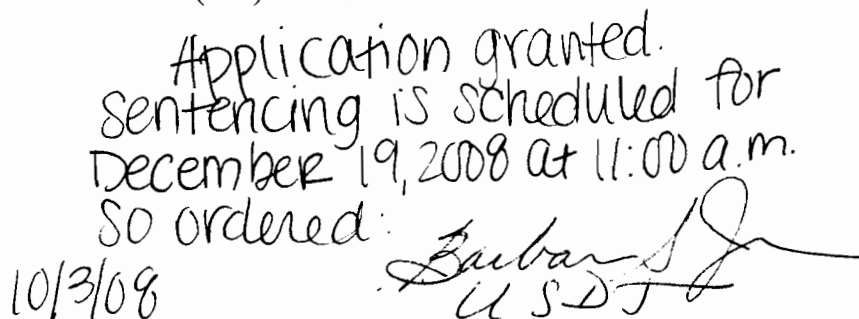 Application granted.
Sentencing is scheduled for
December 19, 2008 at 11:00 a.m.
So ordered:
Barbara S J
10/3/08
USDJ